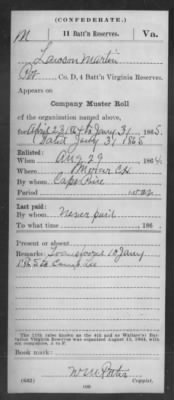 (CONFEDERATE.)
M 11 Batt'n Reserves. Va.
Lawson Martin
Pvt, Co. D, 4 Batt'n Virginia Reserves.
Appears on
Company Muster Roll
of the organization named above,
for April 23, 1864 to Jany 31, 1865.
Dated Jany 31 1865
Enlisted:
When Aug 29, 186
Where Mercer CH
By whom Capt
Period war
Last paid:
By whom Never paid
To what time , 186 .
Present or absent
Remarks: 10 Jany
1865 to
The 11th (also known as the 4th and as Wallace's) Battalion Virginia Reserves was organized August 13, 1864, with six companies, A to F.
Book mark:
(642)
Copyist.